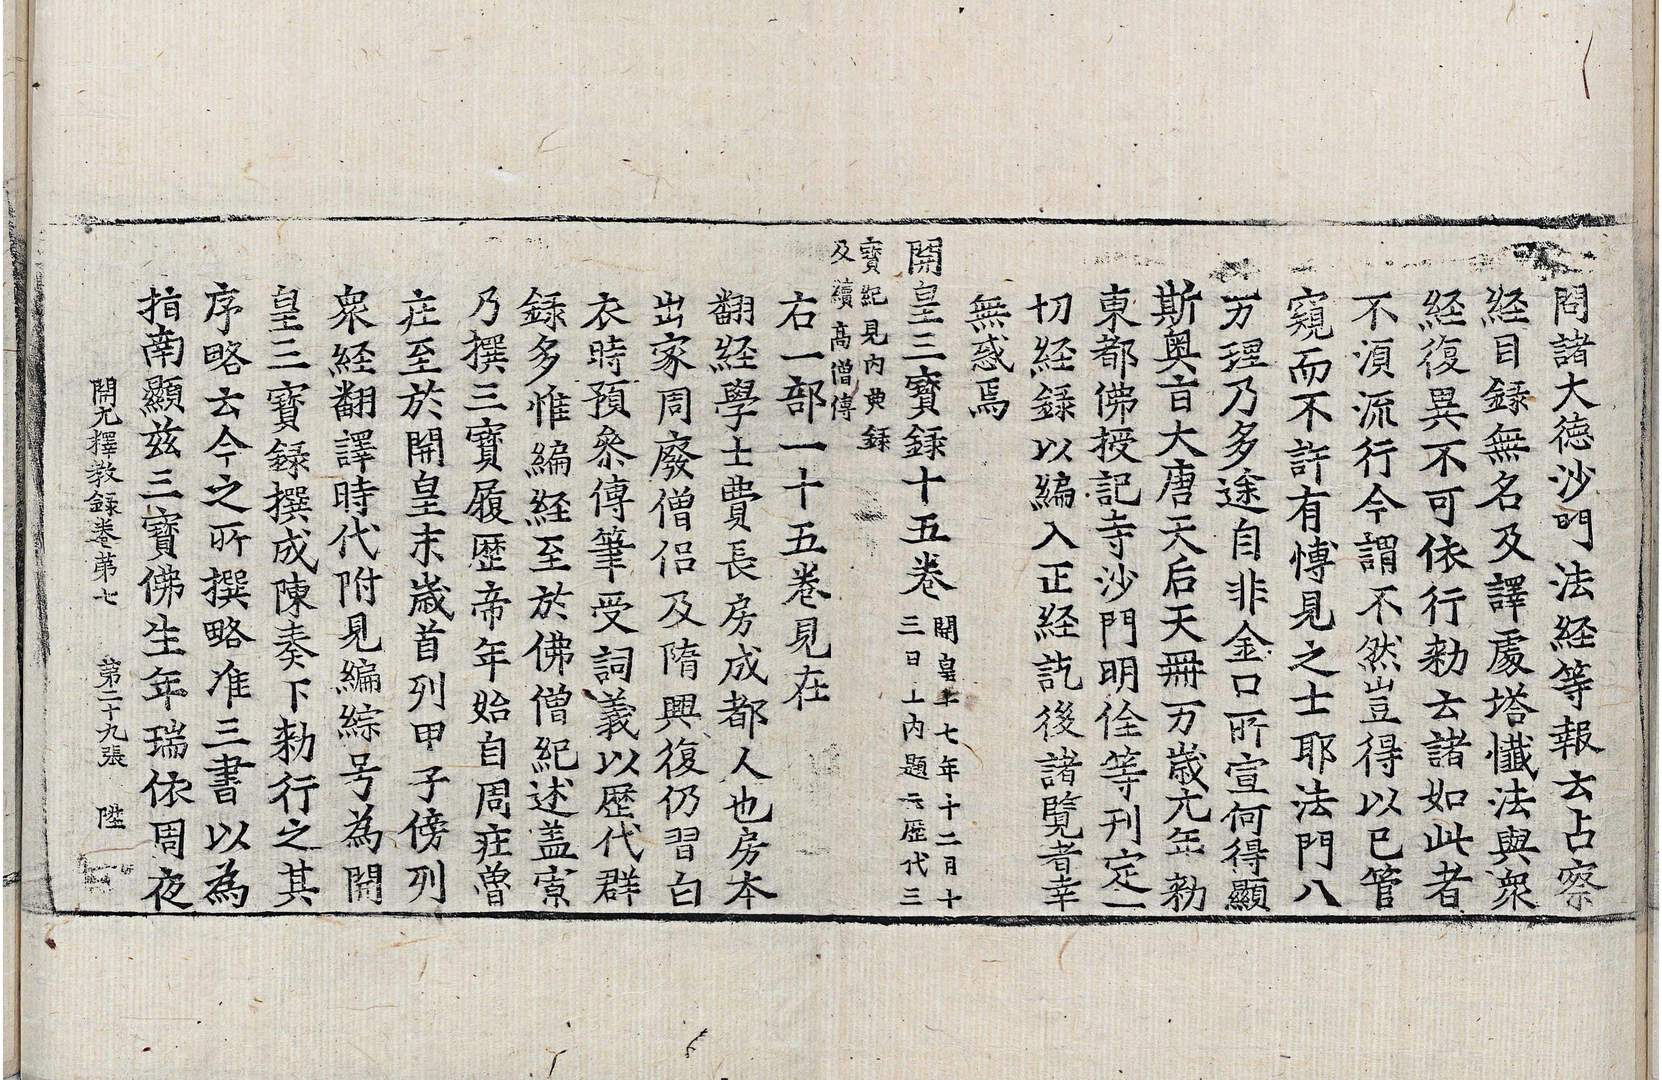 問諸大徳沙門法経等報云占察
経目録無名及譯處塔懴法與衆
経復異不可依行勑云諸如此者
不湏流行今謂不然豈得以已管
窺而不許有愽見之士耶法門八
万理乃多途自非金口所宣何得顯
斯奥㫖大唐天后天冊万歳元年勑
東都佛授記寺沙門明佺等刊定一
切経錄以編入正経訖後諸覧者幸
無惑焉
開皇三寶錄十五巻開皇十七年十二月十
三日上內題云歴代三
寶紀見内典錄
及續高僧傳
右一部一十五巻見在
翻経學士費長房成都人也房本
出家周廢僧侣及隋興復仍習白
衣時預叅傳筆受詞義以歴代群
錄多惟編経至於佛僧紀述盖寡
乃撰三寶履歴帝年始自周荘魯
荘至於開皇末歳首列甲子傍列
衆経翻譯時代附見編綜号為開
皇三寶錄撰成陳奏下勑行之其
序略云今之所撰略准三書以為
指南顯兹三寶佛生年瑞依周夜
開元釋教錄巻第七 第二十九張 陞